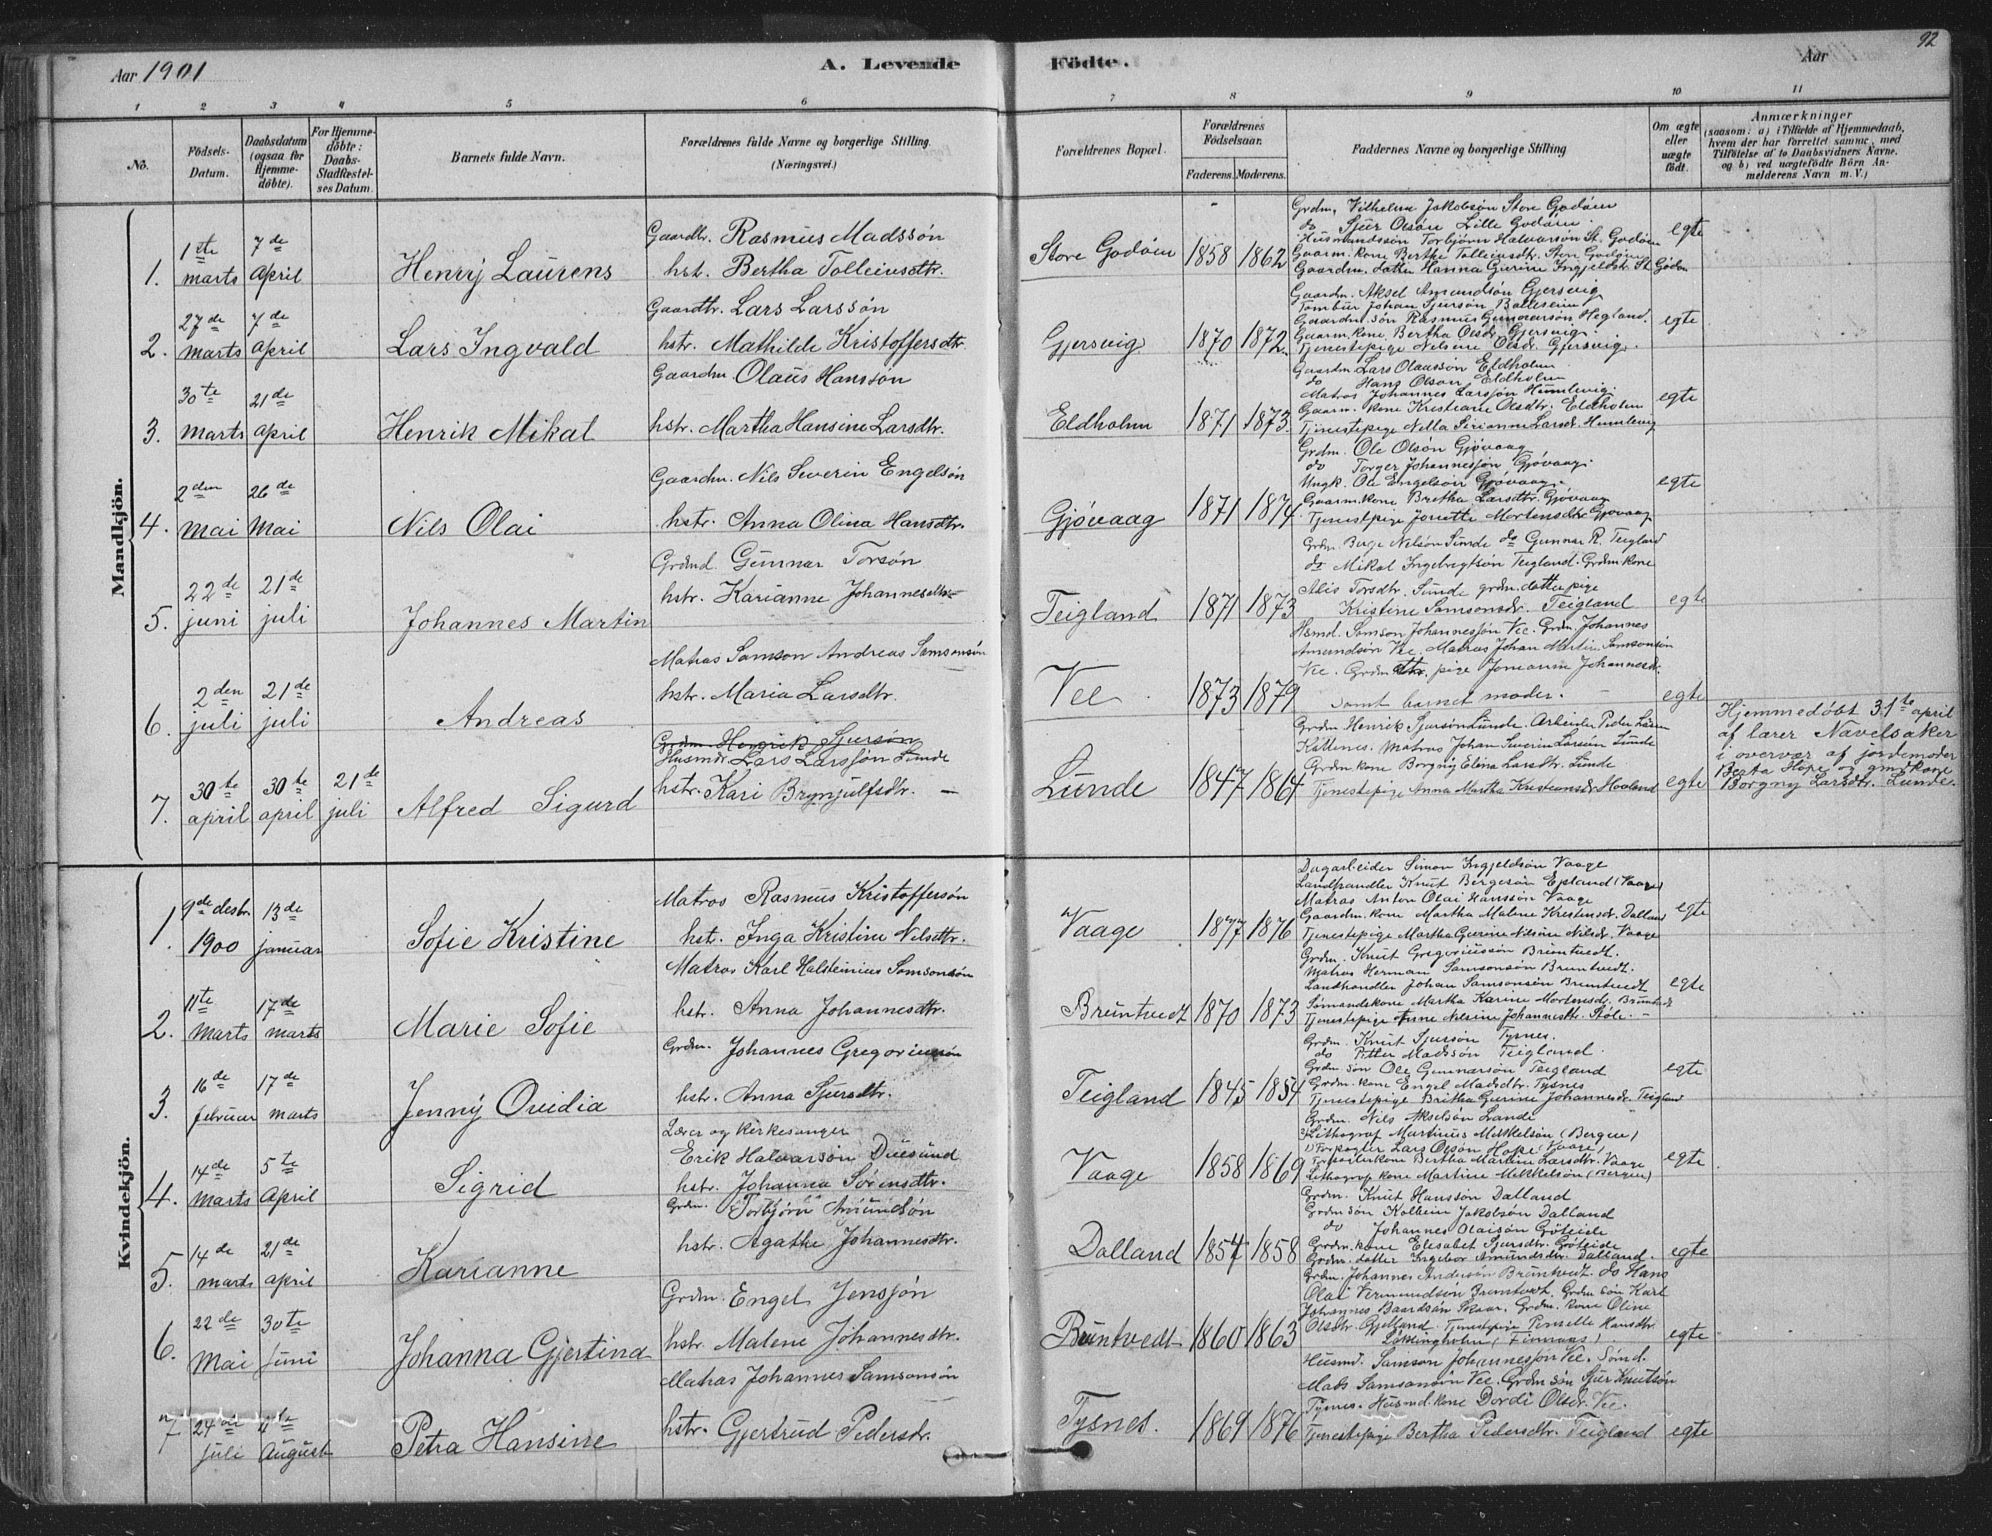 Aar 1901
A. Levende Födte.
Aar
92
1 2 3 4 5 6 7 8 9 10 11
No.
Födsels-Datum.
Daabsdatum (ogsaa for Hjemme-döbte).
For Hjemme-döbte: Daabs-Stadfæstel-ses Datum.
Barnets fulde Navn.
Forældrenes fulde Navne og borgerlige Stilling (Næringsvei.)
Forældrenes Bopæl.
Forældrenes Födselsaar.
Faderens. Moderens.
Faddernes Navne og borgerlige Stilling
Om ægte eller uægte födt.
Anmærkninger
(saasom: a) i Tilfælde af Hjemmedaab, hvem der har forrettet samme, med Tilföielse af to Daabsvidners Navne. og b) ved uægtefödte Börn An-melderens Navn m. V.)
Mandkjön.
1. 1ste marts 7de April Henrÿ Laurens
Gaardbr. Rasmus Madssön
hst. Bertha Tolleivsdtr.
Store Godöen 1858 1862
Grdm. Vilhelm Jakobsön Store Godöen
do Sjur Olsön Lille Godöen
Husmandssön Torbjörn Halvarson St. Godöen
Gaarm. kone Berthe Tolleivsdtr. Store Godöen
Gaardm. datter Hanna Gurine Ingjeldstr. St Godöen
egte
2. 27de marts 7de april Lars Ingvald
Gaardbr. Lars Larssön
hstr. Mathilde Kristoffersdtr
Gjersvig 1870 1872.
Gaardm. Aksel Amundsön Gjersvig
Johan Sjursön
Gaardm. sön Rasmus Gunnarsön Hegland.
Gaarm. kone Bertha Olsdr. Gjersvig.
Tjenestepige Nelsine Olsd. Gjersvig.
egte
3. 30te marts 21de april Henrik Mikal
Gaardm Olaus Hanssön
hstr. Martha Hansine Larsdtr.
Eldholm 1871 1873.
Gaardm Lars Olaussön Eldholm
do Hans Olsön Eldholm
Matros Johannes Larsjön Humlevig.
Gaarm. kone Kristiane Olsdtr. Eldholm
Tjenestepige Nella Sirianna Larsdr Humlevig
egte
4. 2den mai 26de Mai Nils Olai
Gaardm. Nils Severin Engelsön
hstr. Anna Olina Hansdtr.
Gjövaag 1871 1874
Grdm. Ole Olsön Gjövaag
do Torger Johannesjön Gjövaag
Ungk. Ole Engelsön Gjövaag.
Gaarm. kone Bretha Larsdtr. Gjövaag
Tjenestpige Jonette Mortensdtr Gjövaag
egte
5. 22de juni 21de juli Johannes Martin
Grdmd. Gunnar Torsön
hstr. Karianne Johannesdtr
Teigland 1871 1873
Grdm. Birge Nelsön Sunde do Gunnar R. Teigland
do Mikal Ingebregtsön Teigland. Grdmkone
Alis Torsdtr. Sunde grdm. datter pige
Kristine Samsonsdr. Teigland
egte
6. 2den juli 21de juli Andreas
Matros Samson Andreas Samsonsön
hstr. Maria Larsdtr.
Vee 1873 1879
Hsmd. Samson Johannesjön Vee. Grdm. Johannes
Amundsön Vee. Matros Johan Martin Samsonsön
Vee. Grdm dtr. pige Johannesdr.
samt barnet moder.
egte
7. 30te april 30te april 21de juli Alfred Sigurd
Grdm Henrik Sjursön
Husmdr Lars Larsjön Lunde
hstr. Kari Brynjulfsdtr. —
Lunde 1847 1864
Grdm Henrik Sjursön Lunde. Arbeider Peder Larsen
Kattenes. Matros Johan Severin Larssön Lunde
Grdm kone Borgny Elena Larsdtr Lunde
Tjenestepige Anna Martha Kristiansdr Haaland
egte
Hjemmedöbt 31te april
af lærer Navelsaker
i overvær af jordemoder
Berta Hope og gmkone
Borgny Larsdtr. Lunde.
Kvindekjön.
1. 9de desbr. 1900 13de januar Sofie Kristine
Matros Rasmus Kristoffersön
hstr. Inga Kristine Nelsdtr.
Vaage 1877 1876
Dagarbeider Simon Ingjeldsön Vaage
Landhandler Knut Bergesön Epland (Vaage)
Matros Anton Olai Hanssön Vaage
Gaardm. kone Martha Malene Krestensdr. Dalland
Tjenestepige Martha Gurine Nilsine Nilsdr. Vaage
egte
2. 11te Marts 17de marts Marie Sofie
Matros Karl Halsteinius Samsonsön
hstr. Anna Johannesdtr.
Bruntvedt 1870 1873
Grdm. Knut Gregoriussön Bruntvedt.
Matros Herman Samsonsön Bruntvedt.
Landhandler Johan Samsonsön Bruntvedt
Sömandskone Martha Karine Mortensdr. Bruntvedt
Tjenestepige Anne Nilsine Johannesdtr. Stöle.
egte
3. 16de februar 17de marts Jennÿ Ovidia
Grdm. Johannes Gregoriussön
hstr. Anna Sjursdtr.
Teigland 1845 1854
Grdm. Knut Sjursön Tysnes.
do Petter Madssön Teigland.
Grdm sön Ole Gunnarsön Teigland
Grdm. kone Engel Madsdtr. Tysnes
Tjenestepige Britha Gurine Johannesdr. Teigland
egte
4. 14de marts 5te April Sigrid
Lærer og kirkesanger
Erik Halvarsön Duesund
hstr. Johanna Sörensdtr.
Vaage 1858 1869
Grdm. Nils Akselsön Lande
Lithograf Martinus Mikkelsön (Bergen)
Forpagter Lars Olsön Hope Vaage
Forpagterkone Bertha Martine Larsdtr. Vaage
Lithograf kone Martine Mikkelsön (Bergen)
egte
5. 14de marts 21de april Karianne
Grdm. Torbjörn Amundsön
hstr. Agathe Johannesdtr.
Dalland 1854 1858
Grdm. Knut Hanssön Dalland
Grdm sön Kolbein Jakobsön Dalland
do Johannes Olaisön Göteide
Grdm. kone Elisabet Sjursdtr. Göteide
Grdm. datter Ingebor Amundsdtr. Dalland.
egte
6. 22de Mai 30te Juni Johanna Gjertina
Grdm. Engel Jensjön
hstr. Malene Johannesdtr.
Buntvedt 1860 1863
Grdm. Johannes Andersön Bruntvedt. do Hans
Olai Vermundsön Bruntvedt. Grdm sön Karl
Johannes Baardsön Skaar. Grdm. kone Oline
Olsdtr. Gjelland. Tjenestepige Pernelle Hansdtr.
Löklingholm (Finnaas).
egte
7 24de juli 4de August Petra Hansine
Matros Johannes Samsonsön
hstr. Gjertrud Pederstr.
Tysnes. 1869 1876
Husmd. Samson Johannesjön Vee. Sömd.
Mads Samsonsön Vee. Grdm sön Sjur Knutsön
Tysnes. Husmd. kone Dordi Olsdr. Vee.
Tjenestepige Bertha Pedersdtr. Teigland
egte